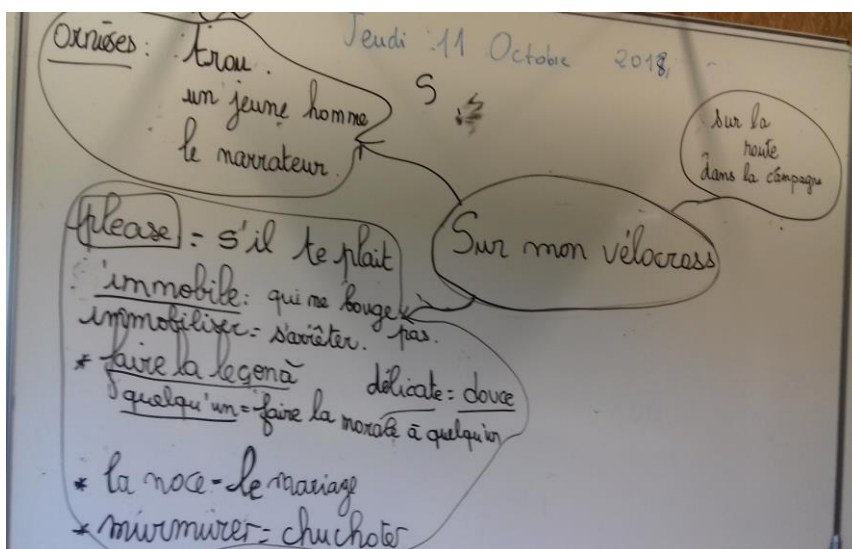 Jeudi 11 Octobre 2018
Ornières : trou.
un jeune homme
le narrateur.
S
sur la
route
dans la campagne
Sur mon vélocross
please = s'il te plait
immobile : qui ne bouge pas.
immobiliser = s'arrêter.
* faire la leçon à
quelqu'un = faire la morale à quelqu'un
délicate = douce
* la noce = le mariage
* murmurer = chuchoter